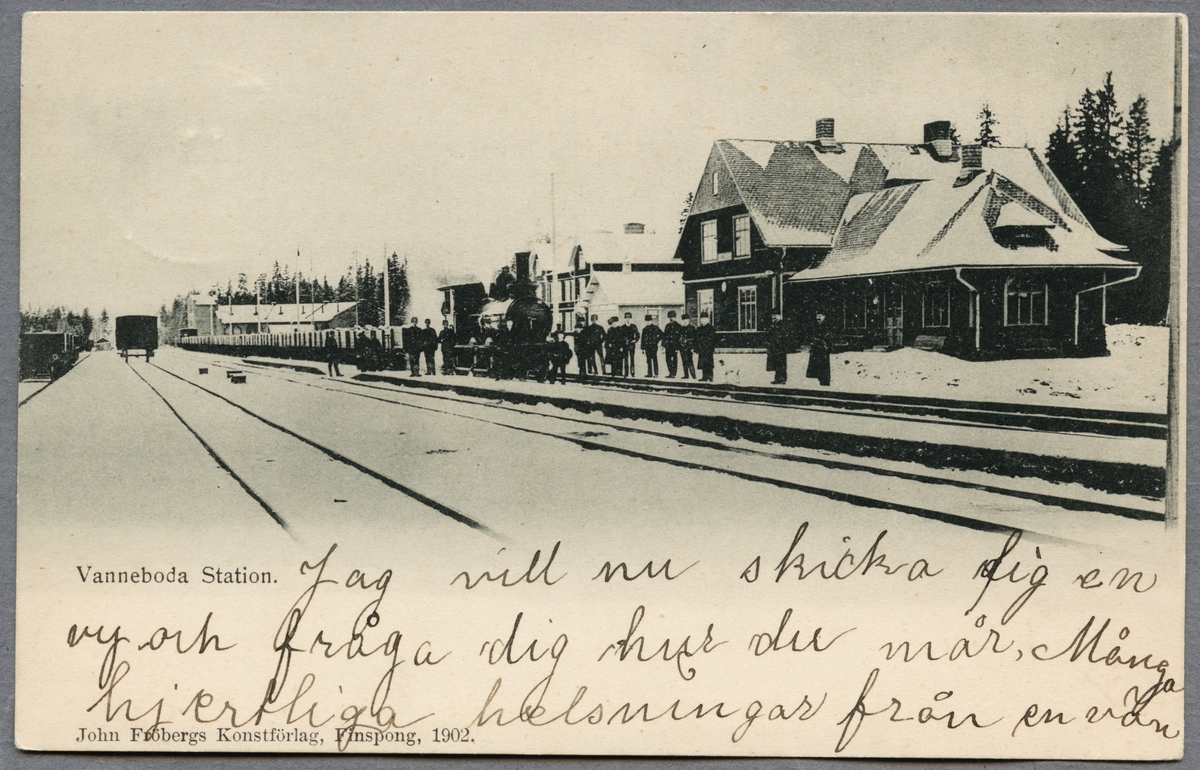 Vanneboda Station. Jag vill nu skicka dig en
vy och fråga dig hur du mår, Många
hjertliga helsningar från en vän
John Fröbergs Konstförlag, Finspong, 1902.